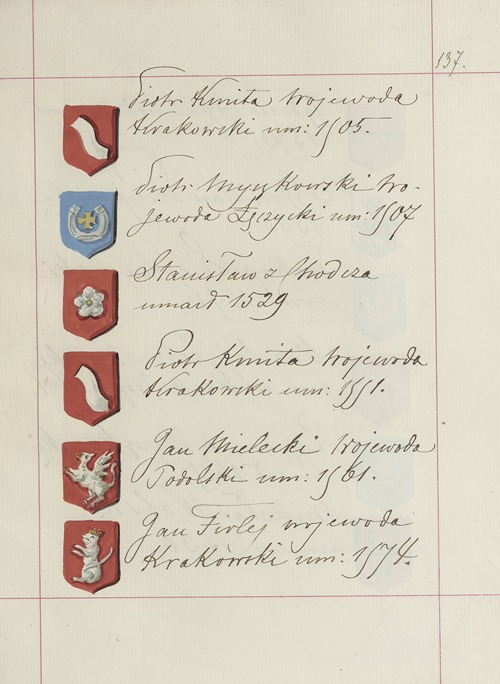 137.
Piotr Kmita wojewoda
Krakowski um: 1505.
Piotr Myszkowski wo-
jewoda Łęczycki um: 1507
Stanisław z Chodcza
umarł 1529
Piotr Kmita wojewoda
Krakowski um: 1551.
Jan Mielecki wojewoda
Podolski um: 1561.
Jan Firlej wojewoda
Krakówski um: 1574.